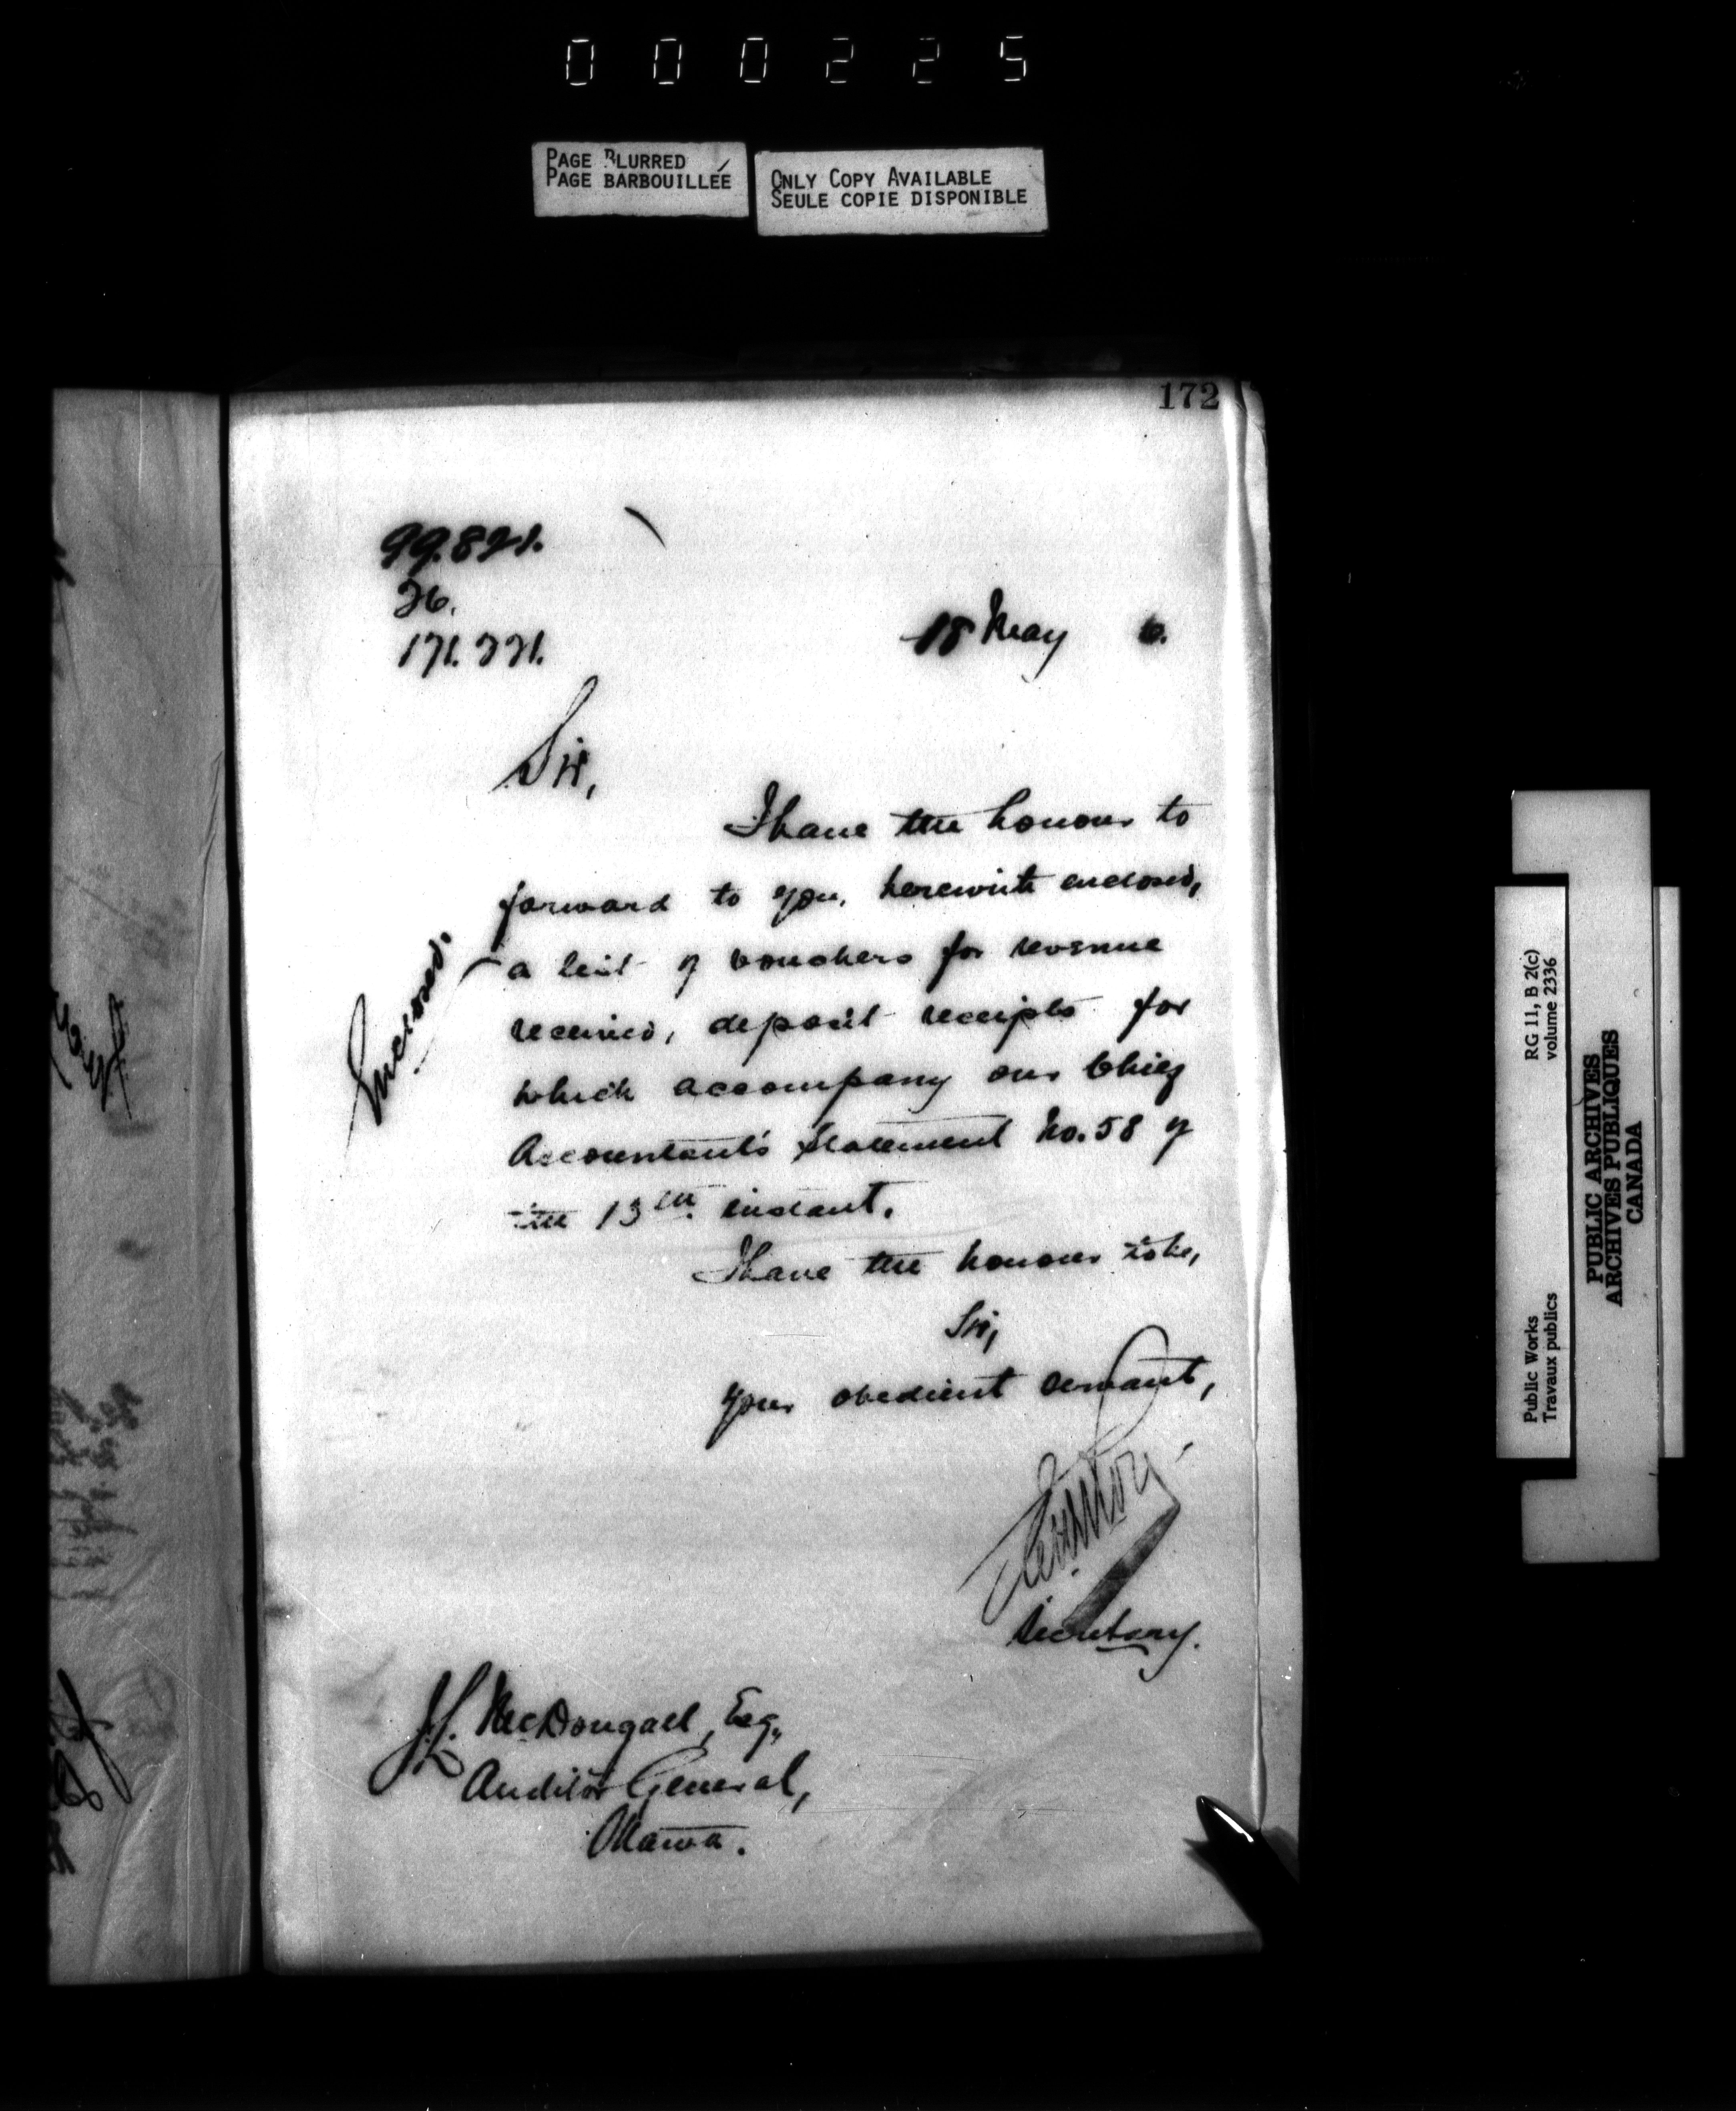 000225
PAGE BLURRED
PAGE BARBOUILLÉE
ONLY COPY AVAILABLE
SEULE COPIE DISPONIBLE
172
99.821.
26.
171.221.
18 May 6.
Sir,
I have the honour to
forward to you, herewith enclosed,
a list of vouchers for revenue
received, deposit receipts for
which accompany our Chief
Accountant's Statement No. 58 of
the 13th instant.
Inclosed.
I have the honour to be,
Sir,
Your obedient servant,
Secretary.
J.L. McDougall, Esq.,
Auditor General,
Ottawa.
Public Works
Travaux publics
RG 11, B 2(c)
volume 2336
PUBLIC ARCHIVES
ARCHIVES PUBLIQUES
CANADA